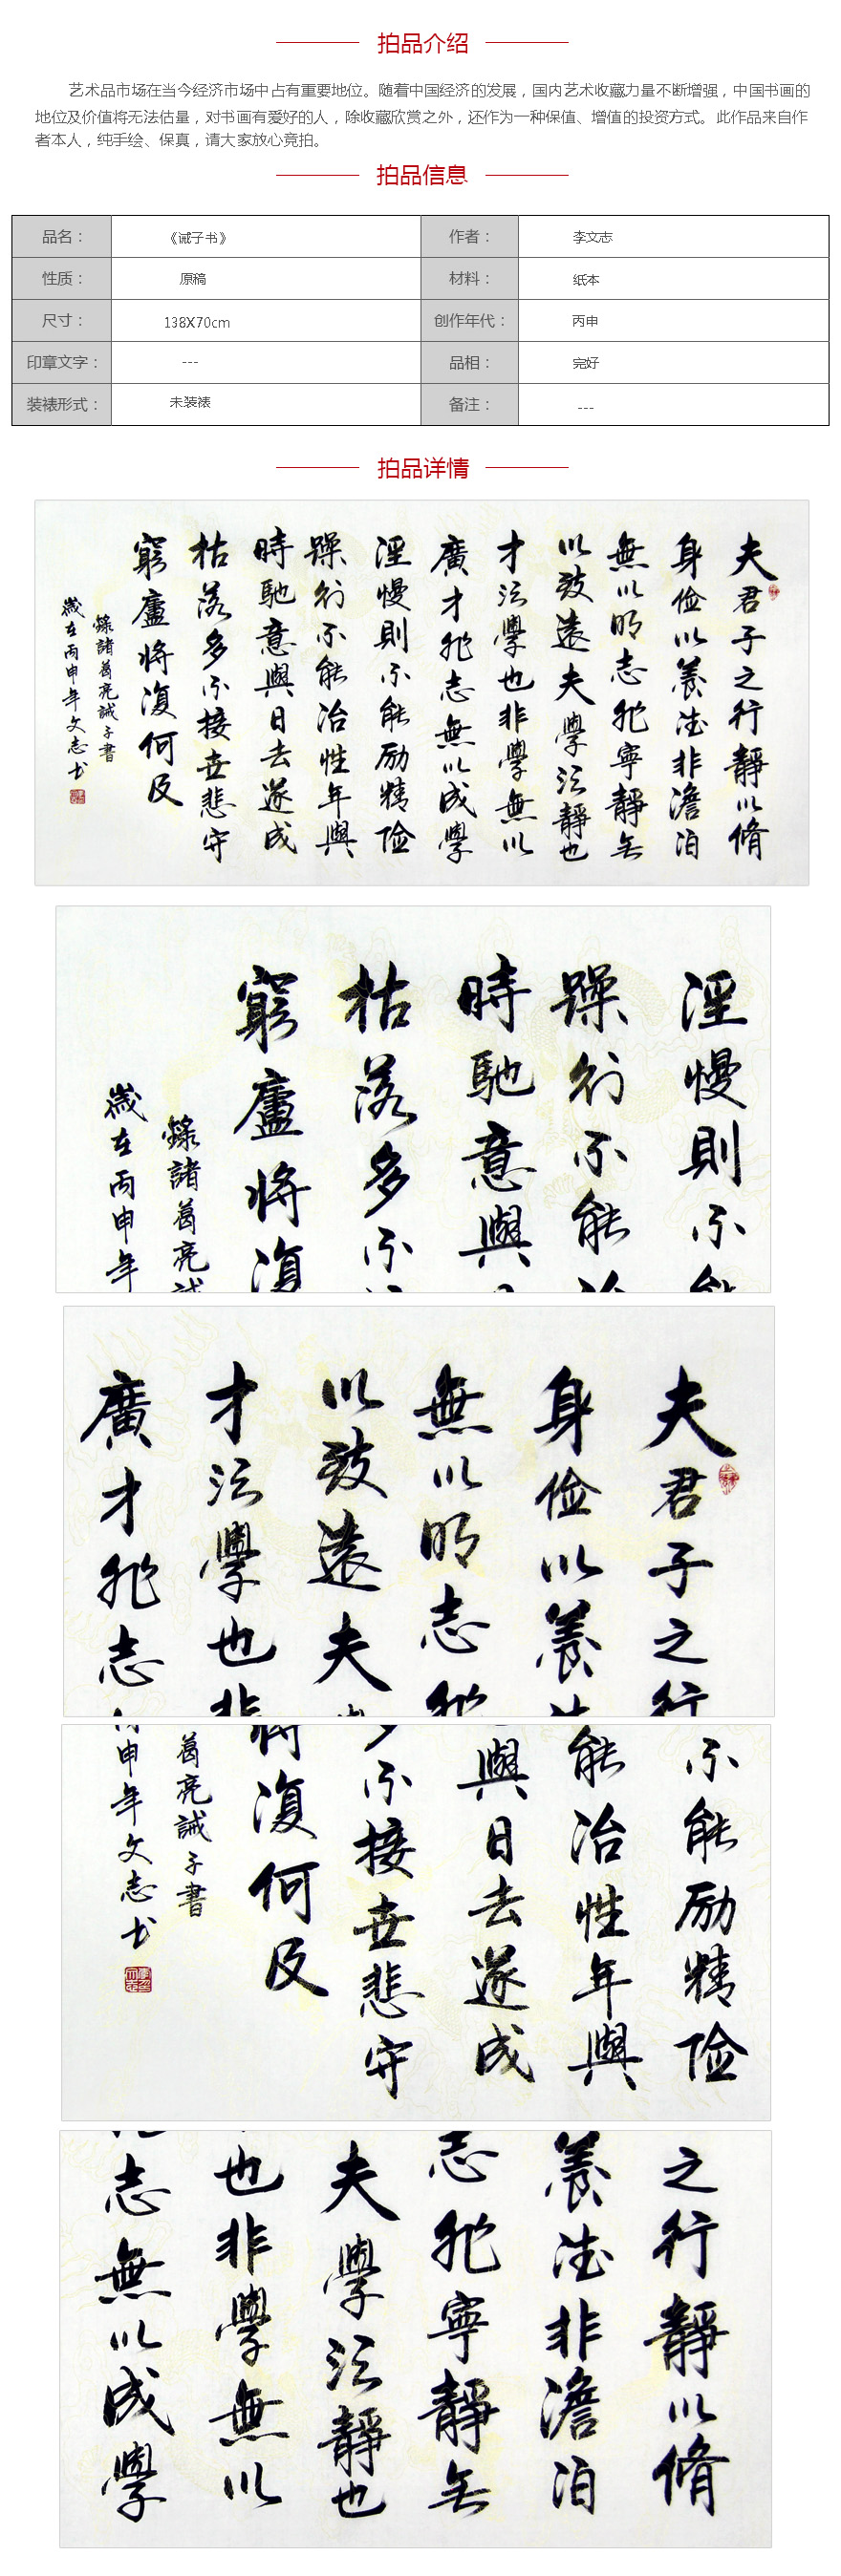 拍品介绍
艺术品市场在当今经济市场中占有重要地位。随着中国经济的发展，国内艺术收藏力量不断增强，中国书画的
地位及价值将无法估量，对书画有爱好的人，除收藏欣赏之外，还作为一种保值、增值的投资方式。此作品来自作
者本人，纯手绘、保真，请大家放心竞拍。
拍品信息
品名： 《诫子书》 作者： 李文志
性质： 原稿 材料： 纸本
尺寸： 138X70cm 创作年代： 丙申
印章文字： --- 品相： 完好
装裱形式： 未装裱 备注： ---
拍品详情
夫君子之行靜以脩
身俭以養德非澹泊
無以明志非寧靜無
以致遠夫學须靜也
才须學也非學無以
廣才非志無以成學
淫慢則不能励精险
躁则不能冶性年與
時馳意與日去遂成
枯落多不接世悲守
窮廬将復何及
錄諸葛亮誡子書
歲在丙申年文志书
淫慢則不能
躁则不能冶
時馳意與
枯落多不
窮廬将復
錄諸葛亮誡
歲在丙申年
夫君子之行
身俭以養
無以明志非
以致遠夫
才须學也非
廣才非志
不能励精险
能冶性年與
與日去遂成
多不接世悲守
将復何及
葛亮誡子書
丙申年文志书
之行靜以脩
養德非澹泊
志非寧靜無
夫學须靜也
也非學無以
志無以成學